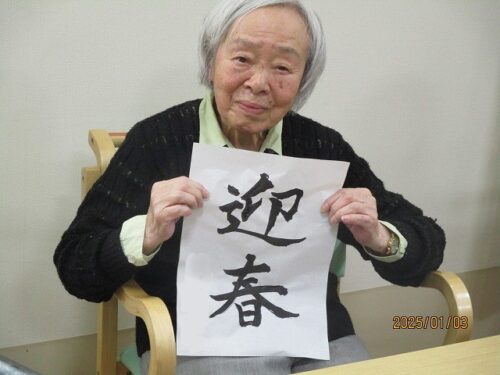 迎
春
2025/01/03